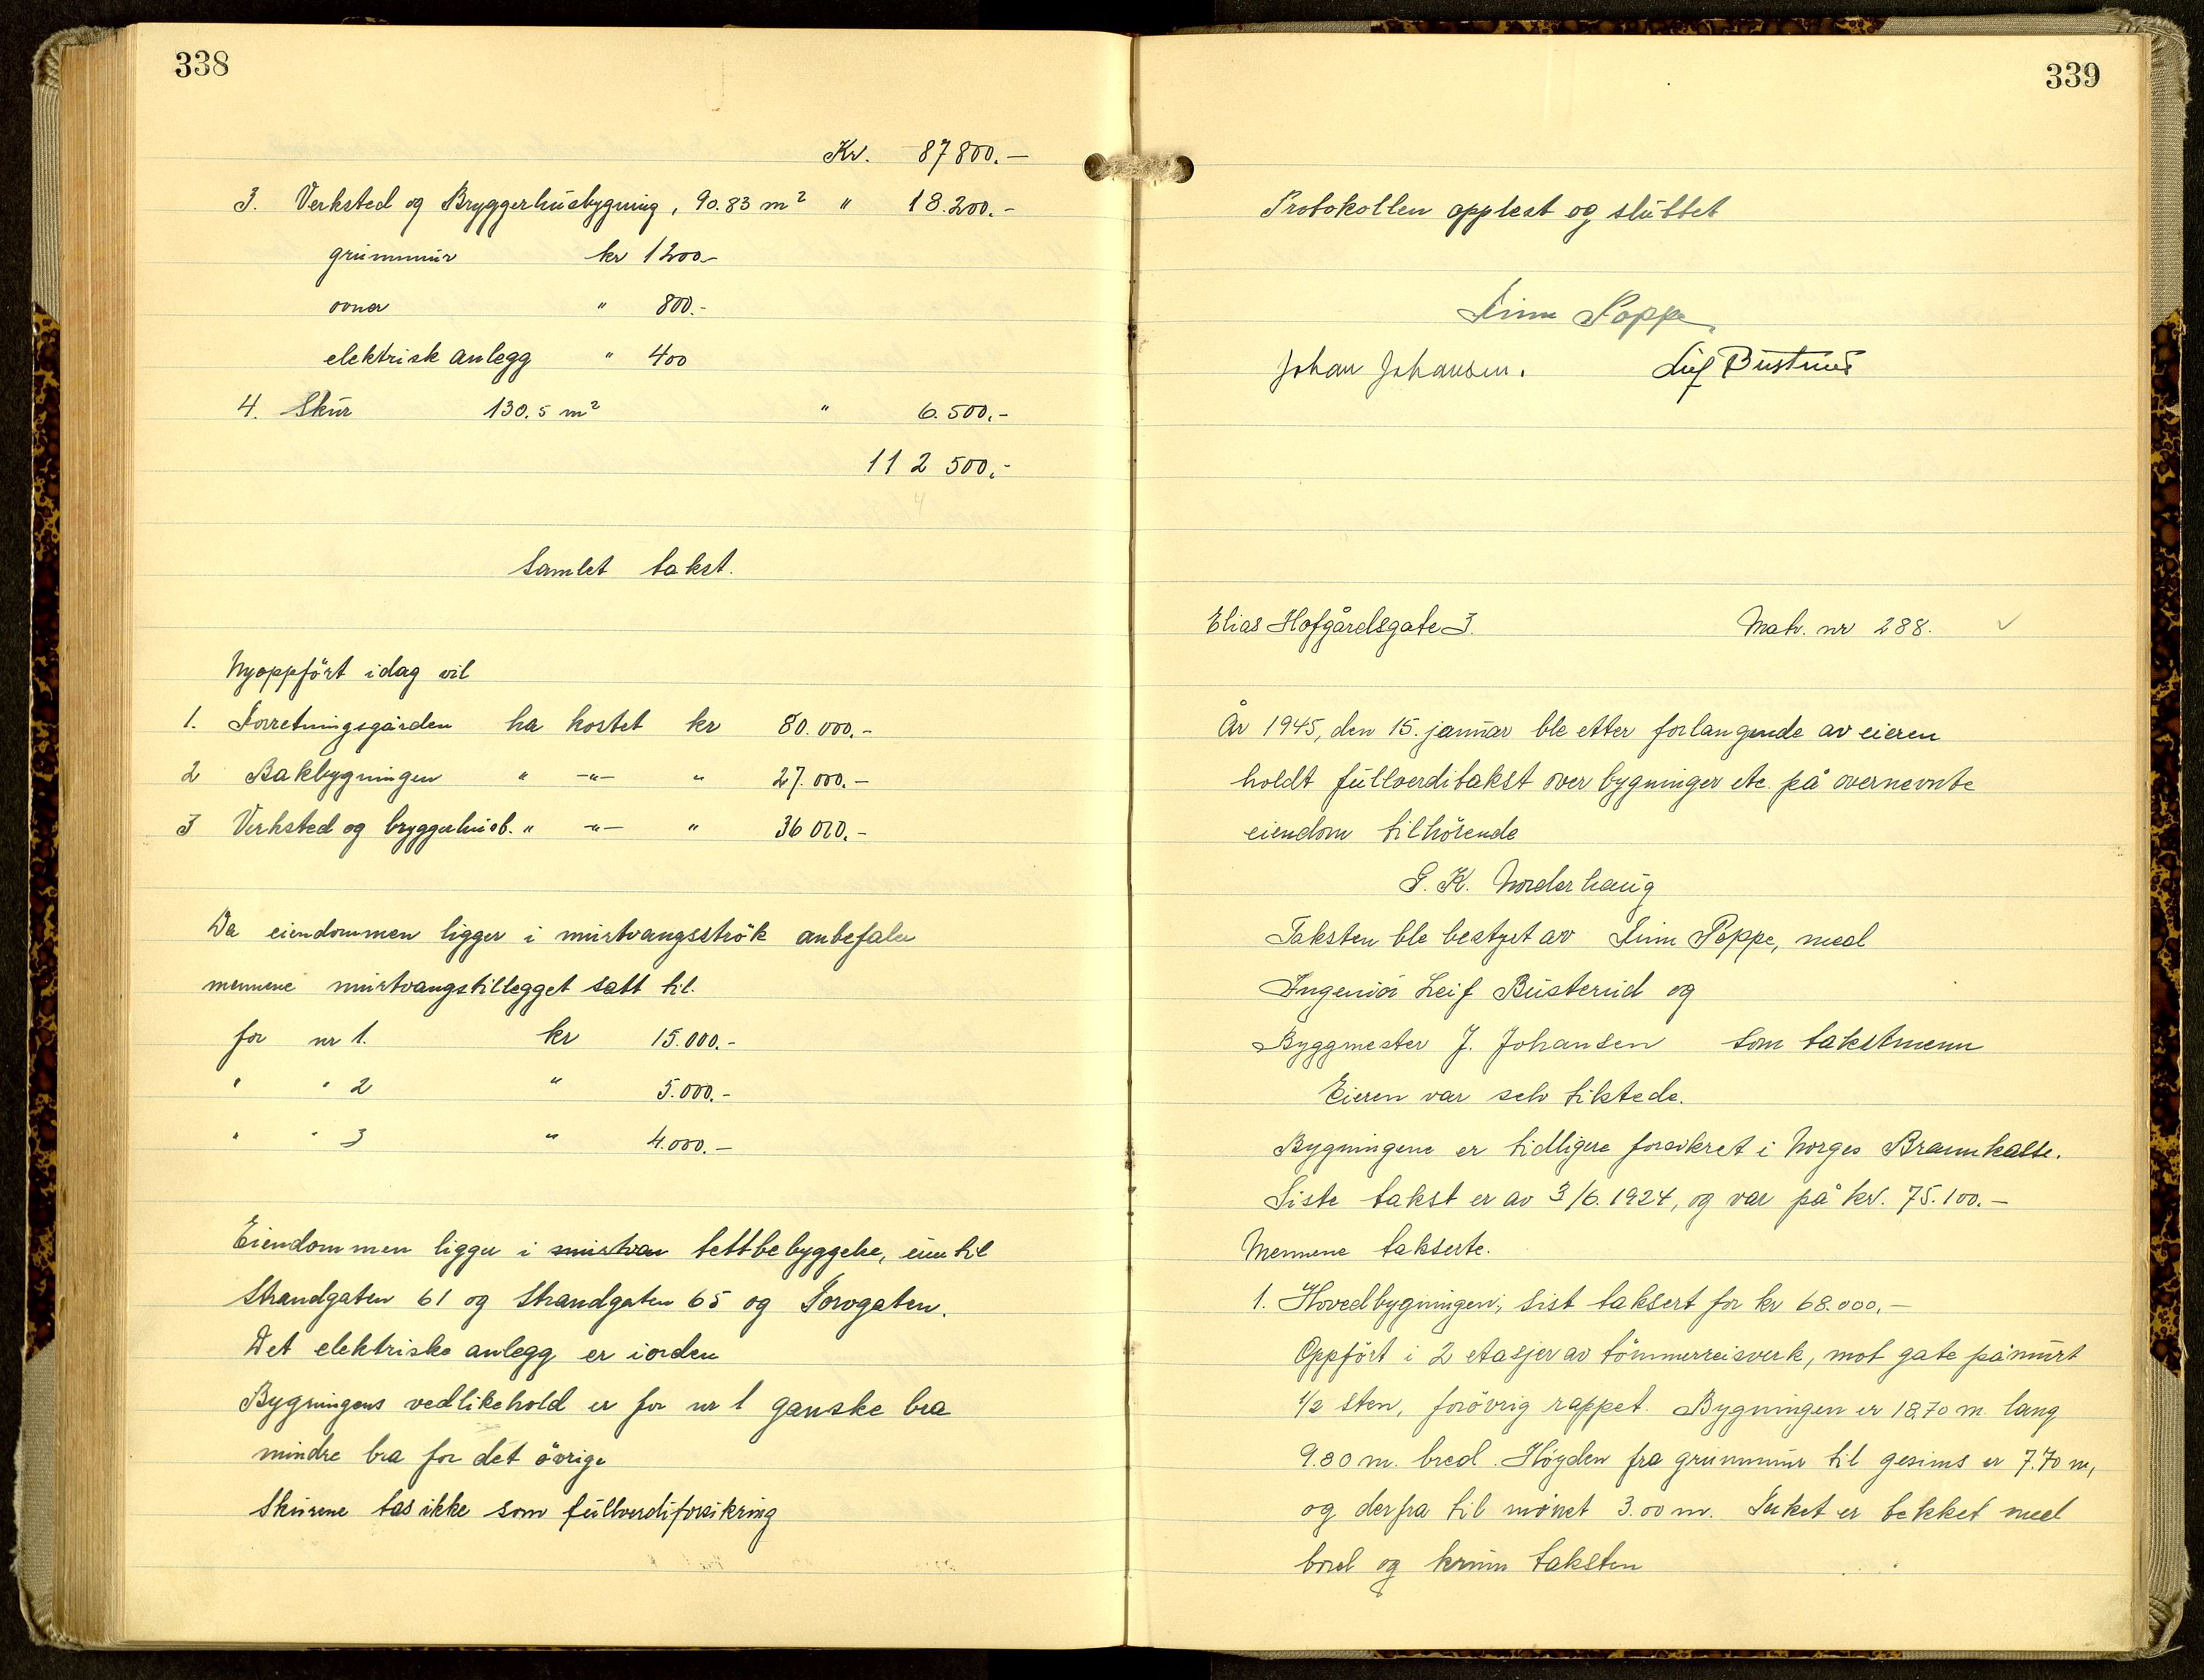 338
Kr. 87800.-
3. Verksted og Bryggerhusbygning, 90.83 m² " 18.200.-
grunnmur kr 1200.-
ovner " 800.-
elektrisk anlegg " 400
4. Skur 130.5 m² " 6.500.-
112 500.-
4
Samlet takst.
Nyoppført idag vil
1. Forretningsgården ha kostet kr 80.000.-
2 Bakbygningen " -"- " 27.000.-
3 Verksted og bryggerhusb. " -"- " 36000.-
Da eiendommen ligger i murtvangsströk anbefaler
mennene murtvangstillegget satt til.
for nr 1. kr 15.000.-
" " 2 " 5.000.-
" " 3 " 4.000.-
Eiendommen ligger i murtvan tettbebyggelse, inn til
Strandgaten 61 og Strandgaten 65 og Torvgaten.
Det elektriske anlegg er iorden
Bygningens vedlikehold er for nr 1 ganske bra
mindre bra for det övrige
Skurene tas ikke som fullverdiforsikring
339
Protokollen opplest og sluttet
Finn Poppe
Johan Johansen. Leif Busterud
Elias Hofgårdsgate 3. Matr. nr 288. ✓
År 1945, den 15. januar ble etter forlangende av eieren
holdt fullverditakst over bygninger etc. på overnevnte
eiendom tilhörende
G. K. Norderhaug
Taksten ble bestyrt av Finn Poppe, med
Ingeniör Leif Busterud og
Byggmester J. Johansen som takstmenn
Eieren var selv tilstede.
Bygningene er tidligere forsikret i Norges Brannkasse.
Siste takst er av 3/6. 1924, og var på kr. 75.100.-
Mennene takserte.
1. Hovedbygningen, sist taksert for kr 68.000.-
Oppfört i 2 etasjer av tömmerreisverk, mot gate påmurt
1/2 sten, forövrig rappet. Bygningen er 18.70 m. lang
9.80 m. bred. Höyden fra grunnmur til gesims er 7.70 m,
og derfra til mönet 3.00 m. Taket er tekket med
bord og krum taksten